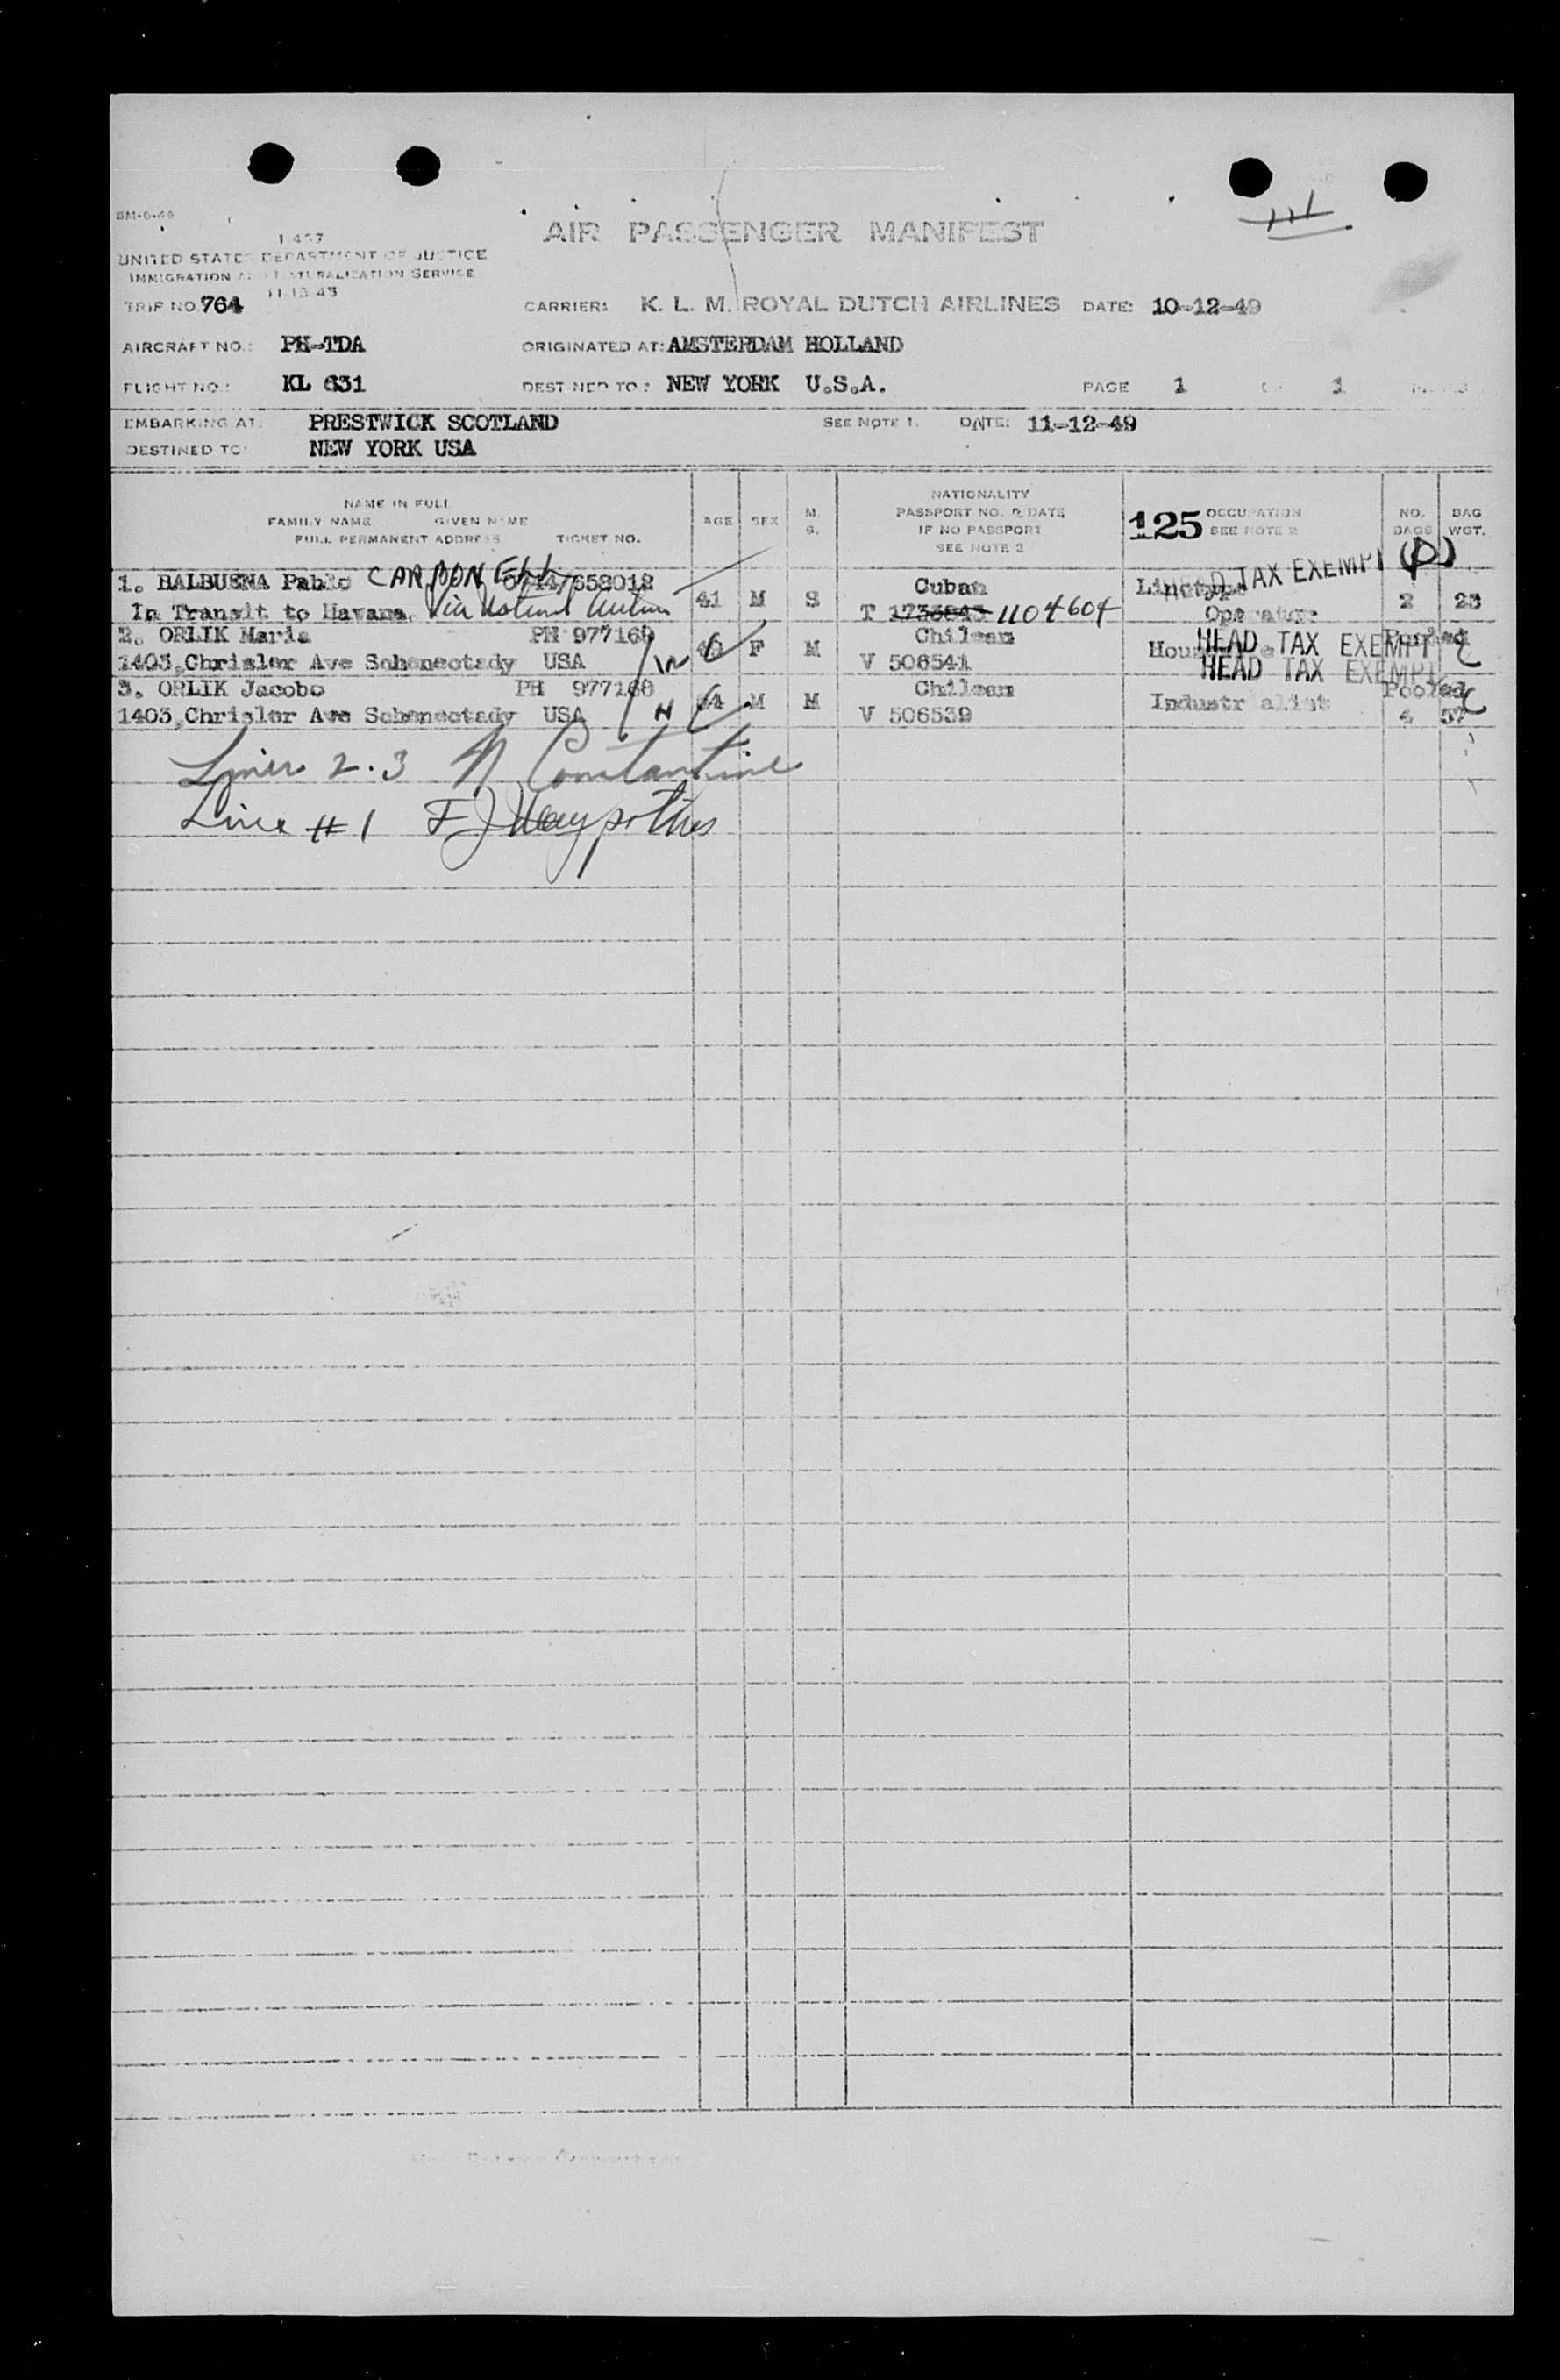 AIR PASSENGER MANIFEST
UNITED STATES DEPARTMENT OF JUSTICE
IMMIGRATION AND NATURALIZATION SERVICE
11-13-43
TRIP NO. 764 CARRIER: K. L. M. ROYAL DUTCH AIRLINES DATE: 10-12-49
AIRCRAFT NO.: PH-TDA ORIGINATED AT: AMSTERDAM HOLLAND
FLIGHT NO.: KL 631 DESTINED TO: NEW YORK U.S.A. PAGE 1 1
EMBARKING AT: PRESTWICK SCOTLAND SEE NOTE 1. DATE: 11-12-49
DESTINED TO: NEW YORK USA
NAME IN FULL
FAMILY NAME GIVEN NAME
FULL PERMANENT ADDRESS TICKET NO.
AGE SEX M. S.
NATIONALITY
PASSPORT NO. & DATE
IF NO PASSPORT
SEE NOTE 2
125 OCCUPATION
SEE NOTE 2
NO. BAGS
BAG WGT.
1. BALBUENA Pablo CARBONELL 658012 Cuban Linotype HEAD TAX EXEMPT (D)
In Transit to Havana. Via National Airlines 41 M S T 1736843 1104604 Operator 2 23
2. ORLIK Maria PH 977169 Chilean HEAD TAX EXEMPT Pooled
1403, Chrisler Ave Schenectady USA F M V 506541 HEAD TAX EXEMPT
3. ORLIK Jacobo PH 977168 Chilean Pooled
1403, Chrisler Ave Schenectady USA M M V 506539 Industrialist 4 57
Lines 2.3 N Constantine
Line #1